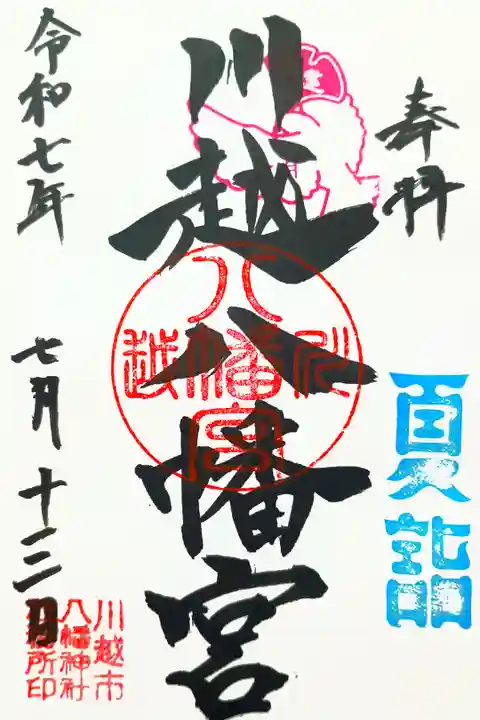 奉拝
夏詣
川越八幡宮
川越八幡宮
令和七年
七月十三日
川越市
八幡神社
務所印